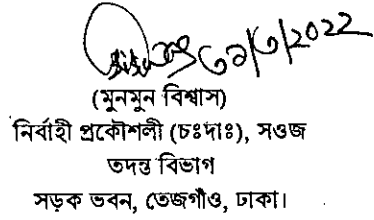 ৩১/৩/২০২২
(মুনমুন বিশ্বাস)
নির্বাহী প্রকৌশলী (চঃদাঃ), সওজ
তদন্ত বিভাগ
সড়ক ভবন, তেজগাঁও, ঢাকা।